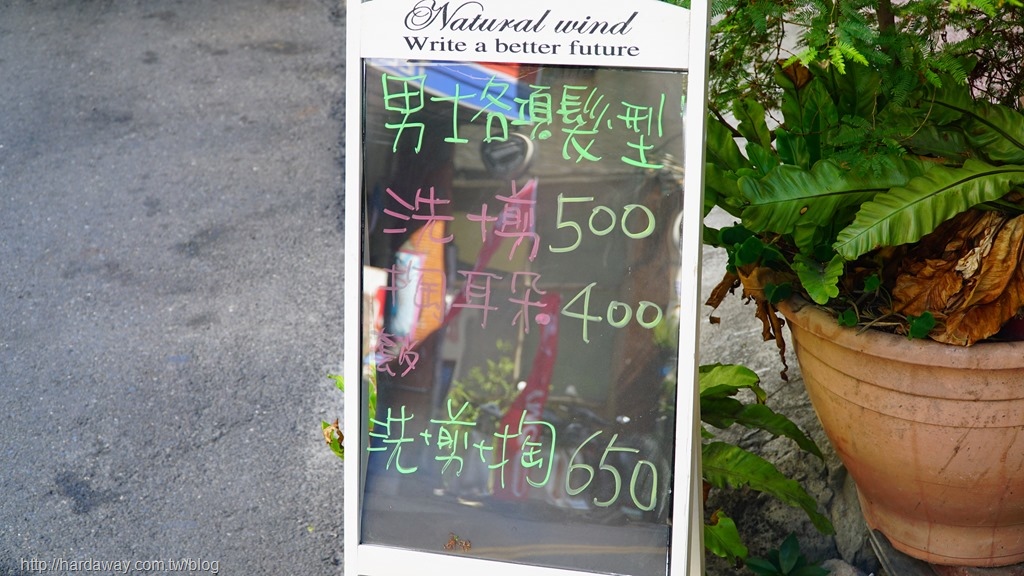 Natural wind
Write a better future
男士各項髮型
洗+剪500
掏耳朵400
洗+剪+掏650
http://hardaway.com.tw/blog